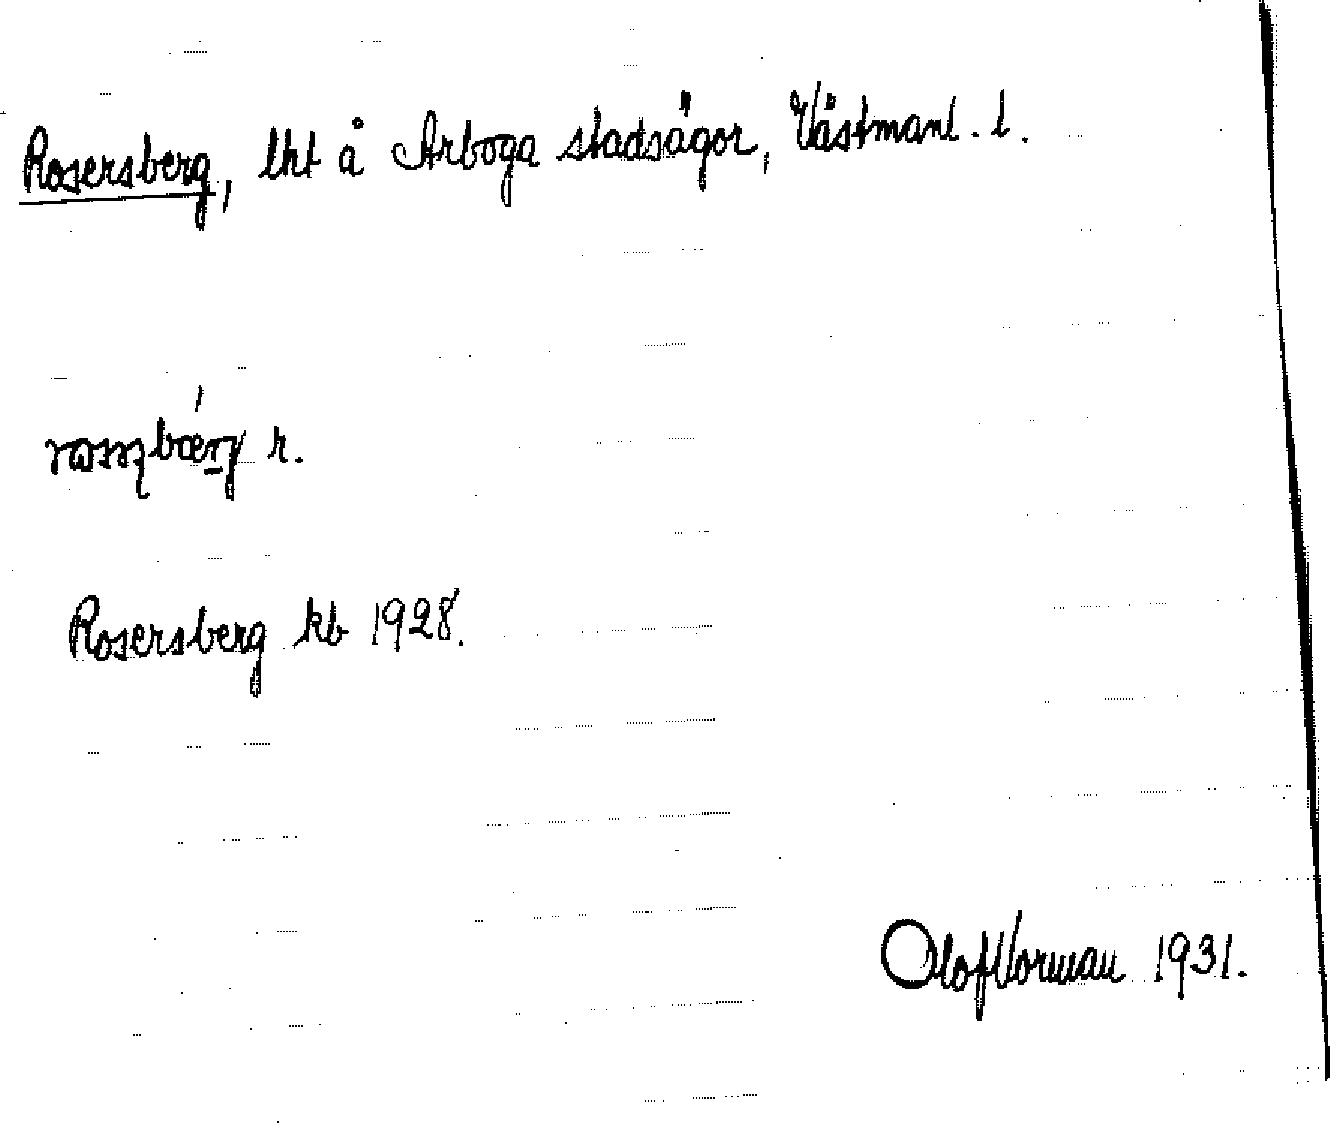 Rosersberg, lht å Arboga stadsägor, Västmanl. l.
r.
Rosersberg kb 1928.
Olof Vorman 1931.